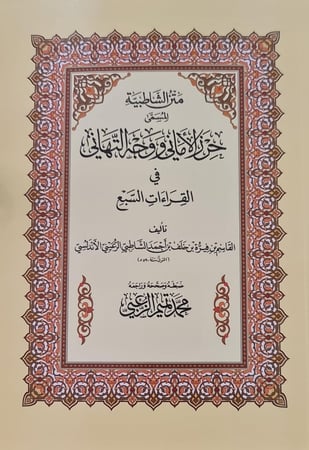 متن الشاطبية
المسمى
حرز الأماني ووجه التهاني
في
القراءات السبع
تأليف
القاسم بن فيرة بن خلف بن أحمد الشاطبي الرعيني الأندلسي
ضبطه وصححه وراجعه
محمد تميم الزعبي